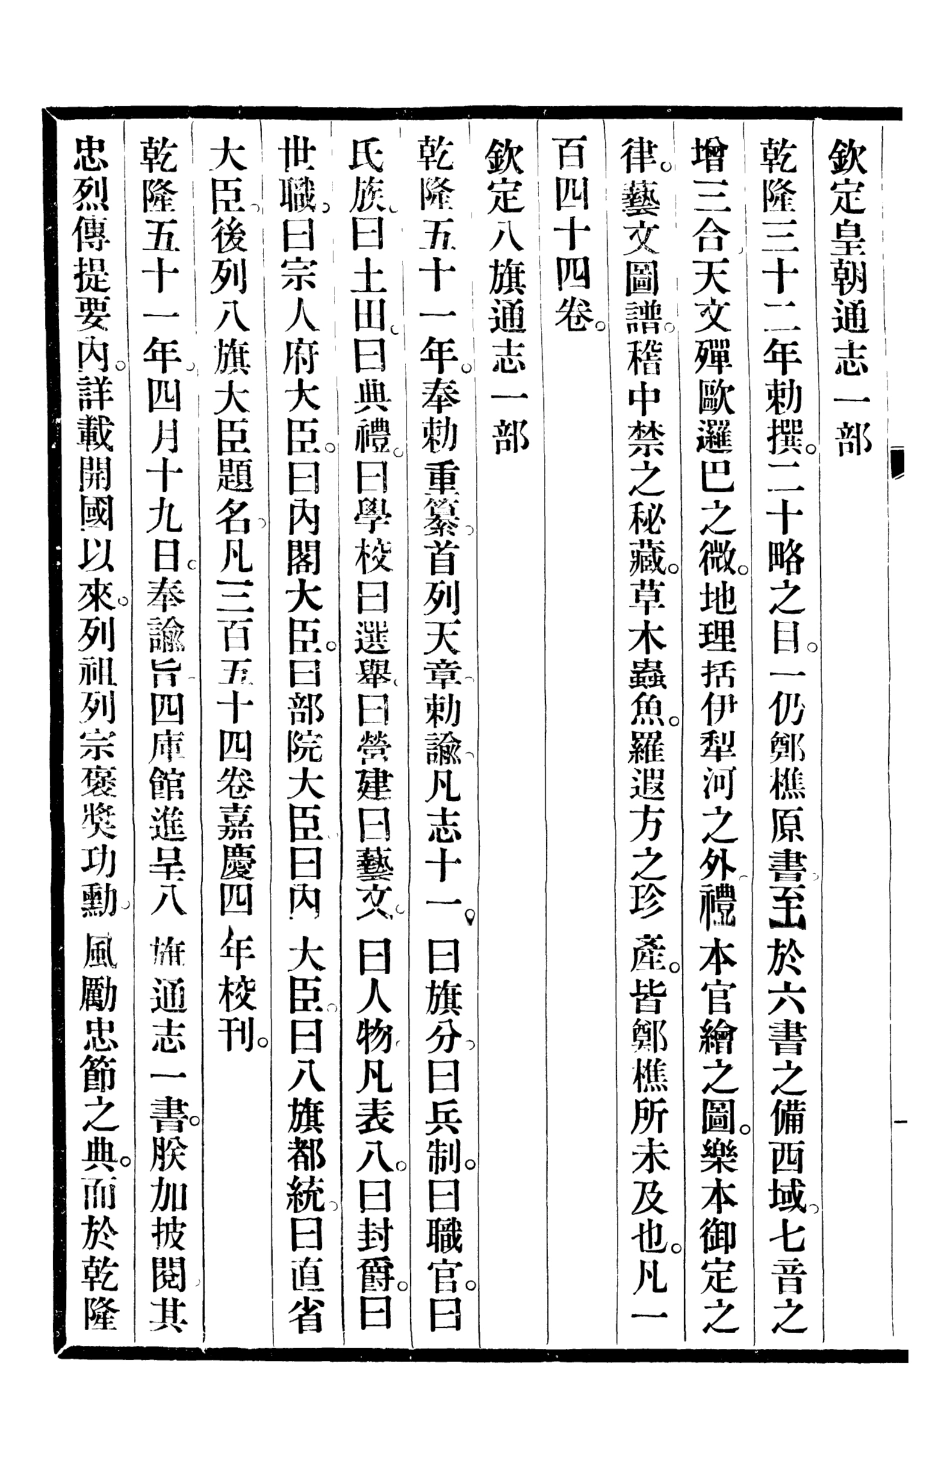 欽定皇朝通志一部
乾隆三十二年勅撰。二十略之目。一仍鄭樵原書。至於六書之備西域。七音之
增三合天文殫歐邏巴之微。地理括伊犁河之外。禮本官繪之圖。樂本御定之
律。藝文圖譜。稽中禁之秘藏。草木蟲魚。羅遐方之珍產。皆鄭樵所未及也。凡一
百四十四卷。
欽定八旗通志一部
乾隆五十一年。奉勅重纂。首列天章勅諭。凡志十一。曰旗分。曰兵制。曰職官。曰
氏族。曰土田。曰典禮。曰學校曰選舉。曰營建曰藝文。曰人物。凡表八。曰封爵。曰
世職。曰宗人府大臣。曰內閣大臣。曰部院大臣。曰內大臣。曰八旗都統。曰直省
大臣。後列八旗大臣題名。凡三百五十四卷嘉慶四年校刊。
乾隆五十一年。四月十九日。奉諭旨。四庫館進呈八旗通志一書。朕加披閱。其
忠烈傳提要內。詳載開國以來。列祖列宗褒獎功勳。風勵忠節之典。而於乾隆